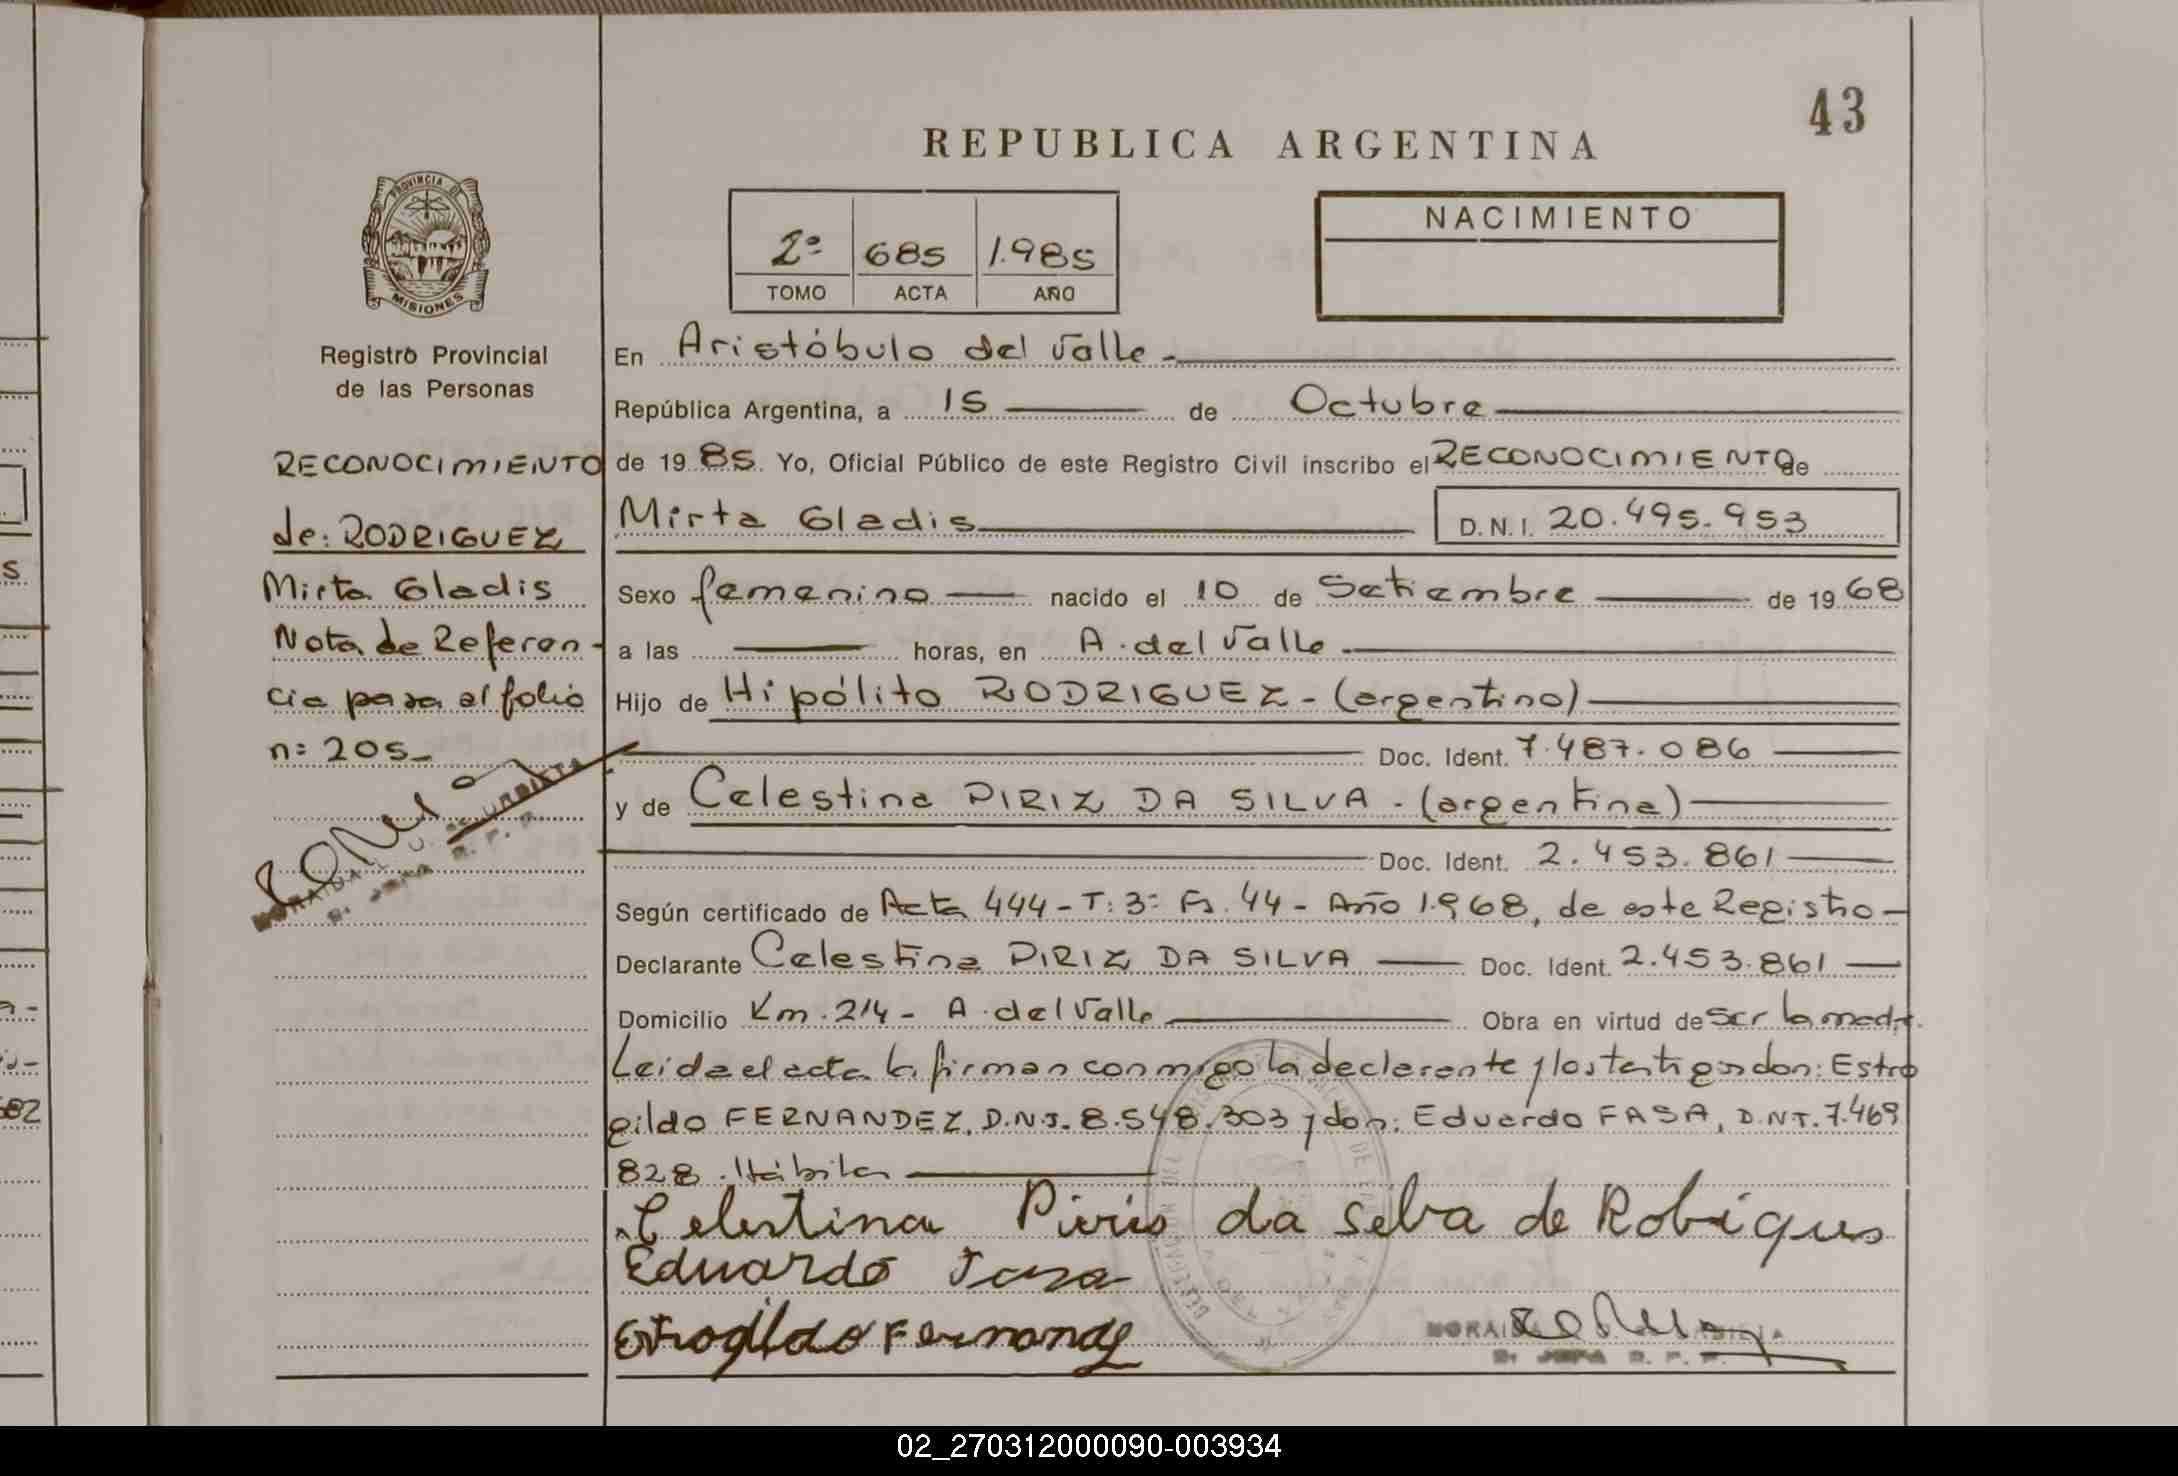 43
REPUBLICA ARGENTINA
PROVINCIA DE
MISIONES
Registro Provincial
de las Personas
2º 685 1.985
TOMO ACTA AÑO
NACIMIENTO
En Aristóbulo del Valle
República Argentina, a 15 de Octubre
de 1985. Yo, Oficial Público de este Registro Civil inscribo el RECONOCIMIENTO de
Mirta Gladis D.N.I. 20.495.953
Sexo femenino nacido el 10 de Setiembre de 1968
a las horas, en A. del Valle
Hijo de Hipólito RODRIGUEZ - (argentino)
Doc. Ident. 7.487.086
y de Celestina PIRIZ DA SILVA - (argentina)
Doc. Ident. 2.453.861
Según certificado de Acta 444 - T: 3º Fs. 44 - Año 1.968, de este Registro -
Declarante Celestina PIRIZ DA SILVA Doc. Ident. 2.453.861
Domicilio Km. 214 - A. del Valle Obra en virtud de ser la madre.
Leida el acta la firman conmigo la declarante y los testigos don: Estro
gildo FERNANDEZ, D.N.I. 8.548.303 y don: Eduardo FASA, D.N.I. 7.469
828. Hábiles
Celestina Piris da Selva de Robigues
Eduardo Fasa
Estrogildo Fernandez
RECONOCIMIENTO
de: RODRIGUEZ
Mirta Gladis
Nota de Referen-
cia para el folio
n: 205-
MORAIDA
JEFA R. P. P.
MORAIDA
JEFA R. P. P.
s
682
02_270312000090-003934